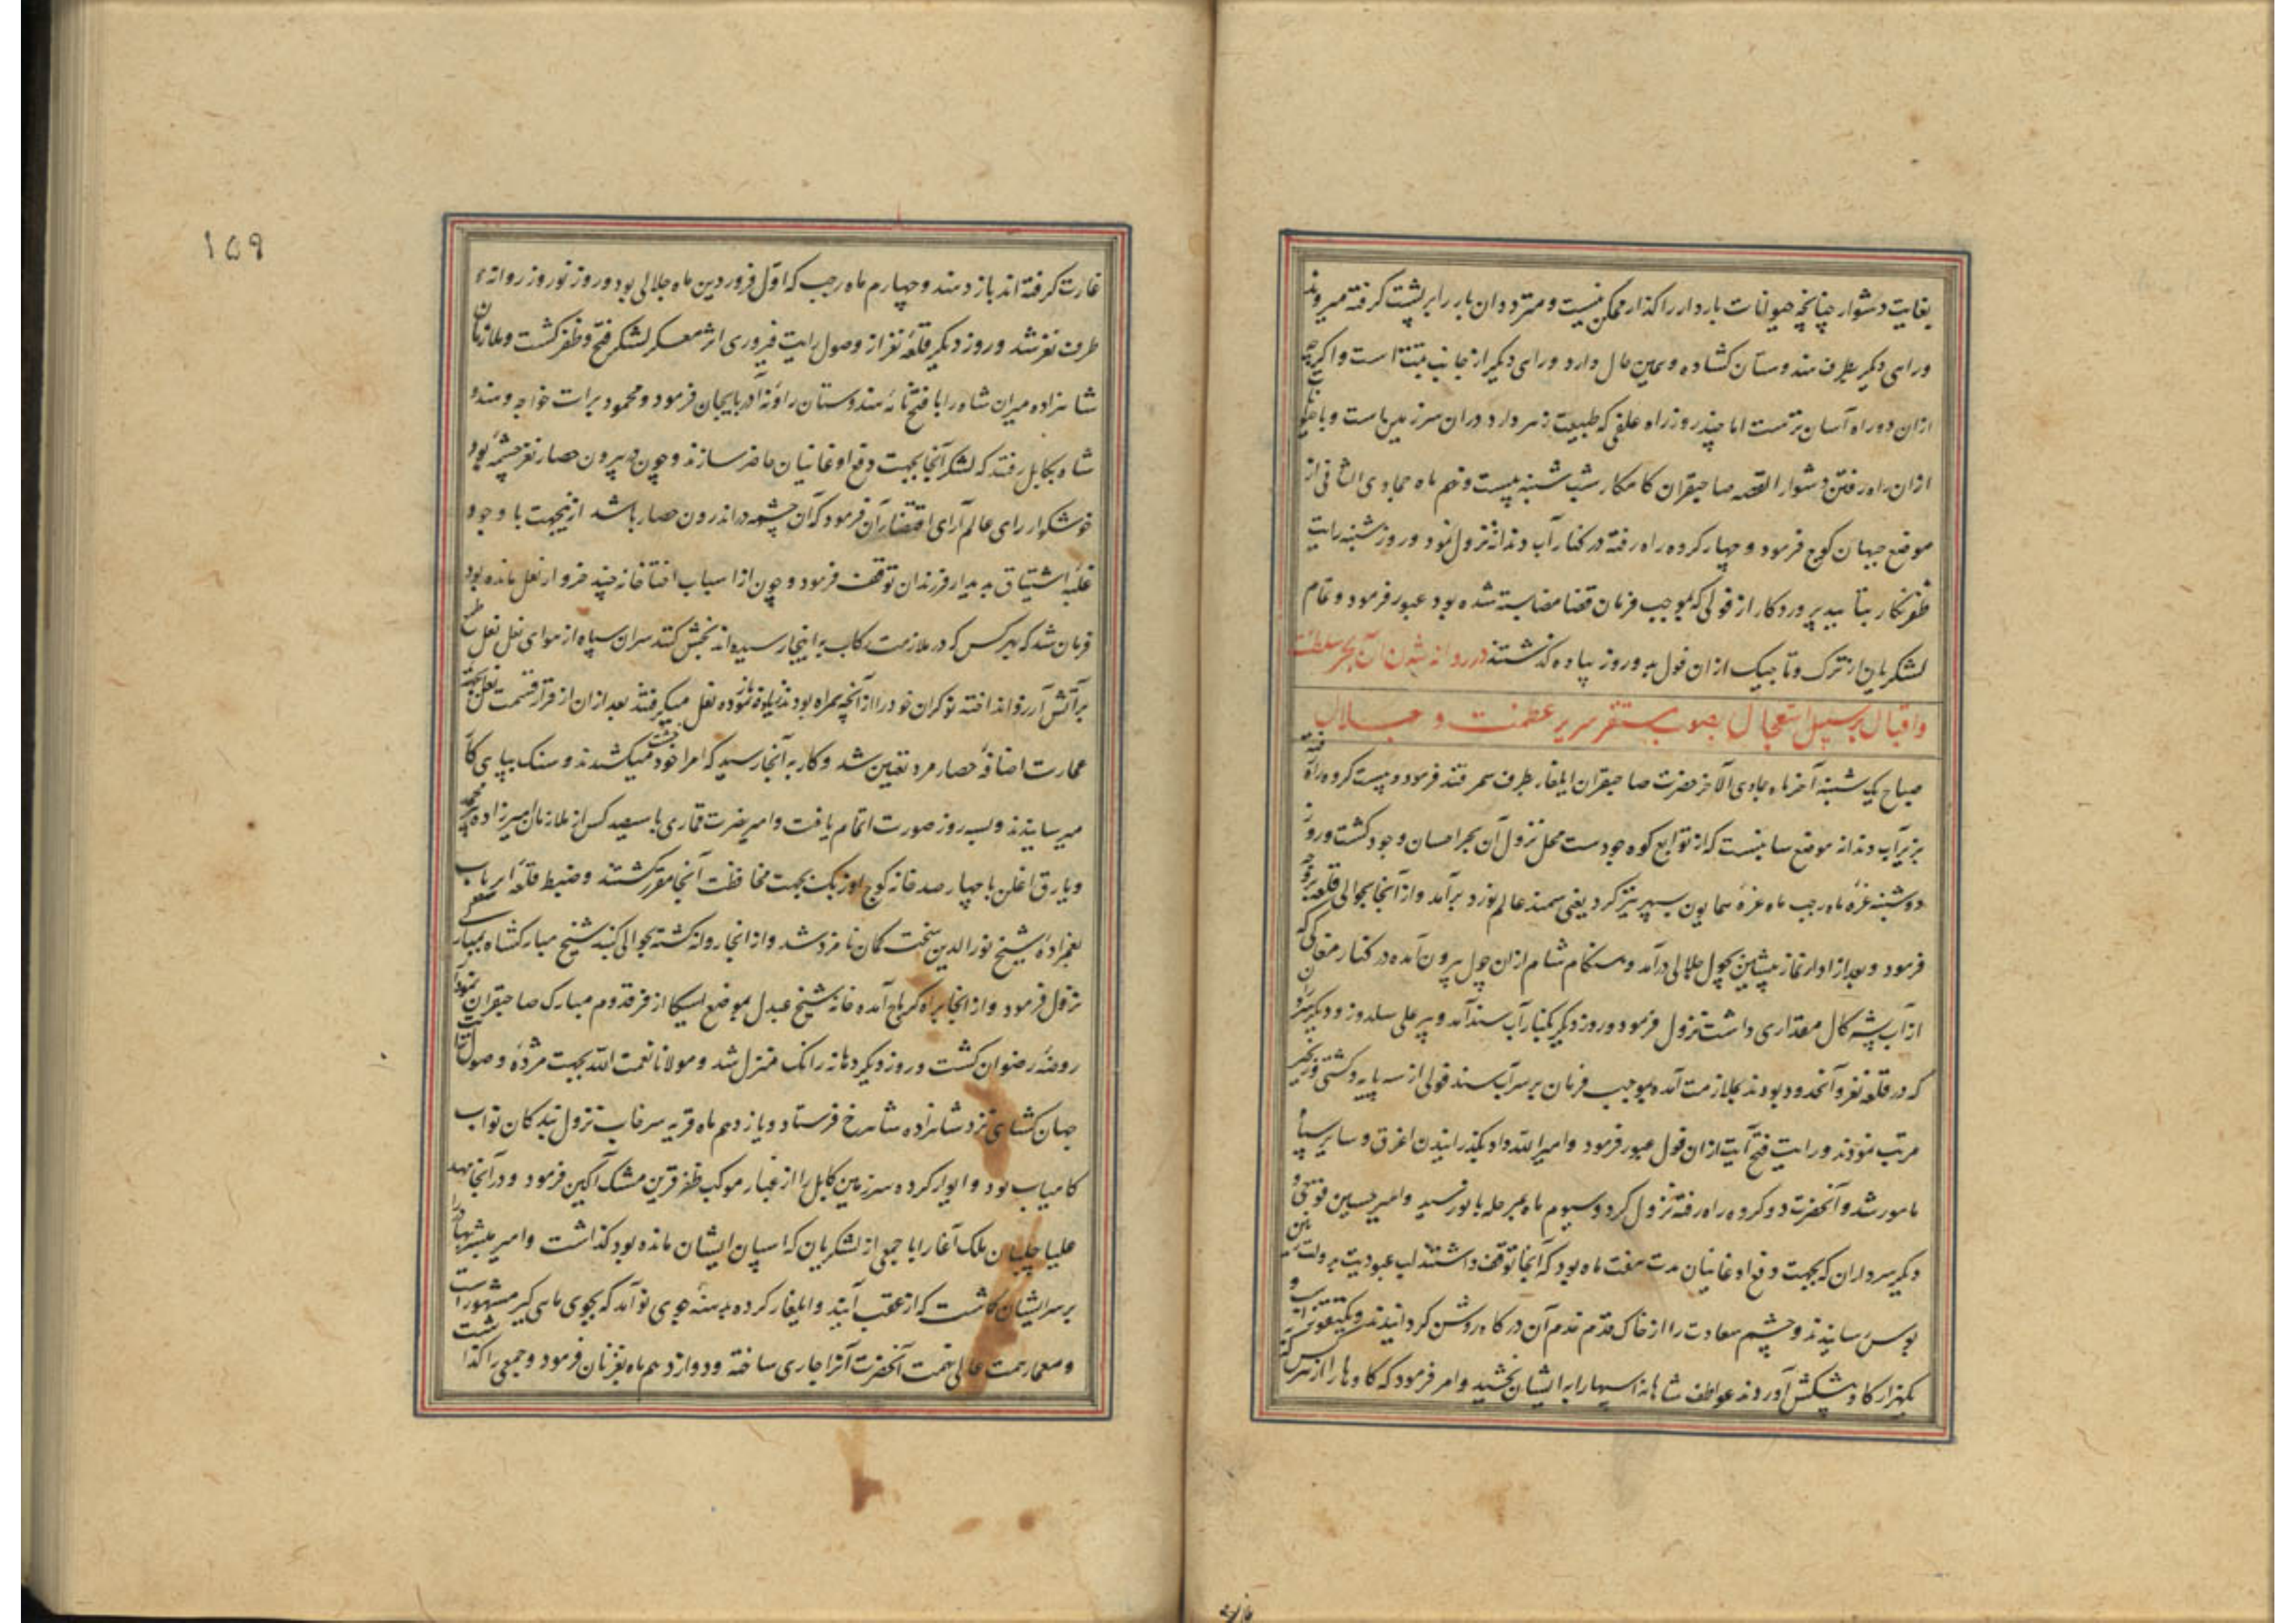 بغایت دشوار چنانچه حیوانات باردار را گذار ممکن نیست و متردوان بار را بر پشت گرفته میروند
و راهی دیگر بطرف هندوستان گشاده و همین حال دارد و راهی دیگر از جانب تبتست و اگرچه
ازان دو راه آسان ترست اما چند روز راه علفی که طبیعت زهر دارد دران سرزمین هاست و با
ازان راه رفتن دشوار القصه صاحبقران کامکار شب شنبه بیست و نهم ماه جمادی الثانی از
موضع جبهان کوچ فرمود و چهار کروه راه رفته در کنار آب دندانه نزول نمود و روز شنبه رایت
ظفرنگار بتایید پروردگار از قولی که بموجب فرمان قضا مضا بسته شده بود عبور فرمود و تمام
لشکریان از ترک و تاجیک ازان قول بدو روز پیاده گذشتند در روانه شدن آن بحر سلطنت
و اقبال بر سبیل استعجال بصوب مستقر سریر عظمت و جلال
صباح یک شنبه آخر ماه جمادی الآخر حضرت صاحبقران ایلغار بطرف سمرقند فرمود و بیست کروه راه رفته
بزیر آب دندانه موضع سانبست که از توابع کوه جودست محل نزول آن بحر احسان و جود گشت و روز
دوشنبه غره ماه رجب ماه غره همایون بسپهر تیزگرد یعنی سمند عالم نورد برآمد و از آنجا بحوالی قلعه بروجه
فرمود و بعد از ادای نماز پیشین بچول جلالی درآمد و هنگام شام ازان چول بیرون آمده در کنار مغاکی که
از آب پشه کال مقداری داشت نزول فرمود و روز دیگر بکنار آب سند آمد و پیر علی سلدوز و دیگر
که در قلعه نغر و آنحدود بودند بملازمت آمده بموجب فرمان بر سر آب سند قولی از سه پایه و کشتی و زنجیر
مرتب نمودند و رایت فتح آیت ازان قول عبور فرمود و امیر الله داد بگذرانیدن اغرق و سایر سپاه
مامور شد و آنحضرت دو کروه راه رفته نزول کرد و سیوم ماه بمرحله بانو رسید و امیر حسین قوجین و
دیگر سرداران که بجهت دفع اوغانیان مدت هفت ماه بود که آنجا توقف داشتند لب عبودیت بدولت زمین
بوس رسانیدند و چشم سعادت را از خاک قدم خدم آن درگاه روشن گردانیدند و یکتقوز اسب و
یکهزار گاو پیشکش آوردند عواطف شاهانه اسبها را به ایشان بخشید و امر فرمود که گاوها را از هر کس که
غارت گرفته اند باز دهند و چهارم ماه رجب که اول فروردین ماه جلالی بود و روز نوروز روانه
طرف نغر شد و روز دیگر قلعه نغر از وصول رایت فیروزی اثر معسکر لشکر فتح و ظفر گشت و ملازمان
شاهزاده میران شاه را با فتحنامه هندوستان روانه آذربایجان فرمود و محمود برات خواجه و هندو
شاه بکابل رفتند که لشکر آنجا بجهت دفع اوغانیان حاضر سازند و چون در بیرون حصار نغر چشمه بود
خوشگوار رای عالم آرای اقتضا آن فرمود که آن چشمه در اندرون حصار باشد ازینجهت با وجود
غلبه اشتیاق بدیدار فرزندان توقف فرمود و چون از اسباب اختاخانه چند خروار نعل مانده بود
فرمان شد که بهر کس که در ملازمت رکاب بر اینجا رسیده اند بخش کنند سران سپاه از هوای نعل نعل طرب
بر آتش آرزو انداخته نوکران خود را از آنچه همراه بودند زیاده نموده نعل میگرفتند بعد ازان از قرار قسمت نعل بجهت
عمارت اضافه حصار مرد تعیین شد و کار به آنجا رسید که امرا خود خشت میکشیدند و سنک بپای کار
میرسانیدند و بسه روز صورت اتمام یافت و امیر نصرت قماری با سیصد کس از ملازمان امیرزاده پیر محمد
و یارق اغلن با چهار صد خانه کوچ اوزبک بجهت محافظت آنجا مقرر گشتند و ضبط قلعه ایریاب
بعمزاده شیخ نورالدین سخت کمان نامزد شد و از انجا روانه گشته بحوالی گنبد شیخ مبارکشاه
نزول فرمود و از انجا براه کرماج آمده خانه شیخ عبدل بموضع اسیکا از فر قدوم مبارک صاحبقران نمودار
روضه رضوان گشت و روز دیگر دهانه رانک منزل شد و مولانا نعمت الله بجهت مژده وصول رایت
جهان گشای نزد شاهزاده شاهرخ فرستاد و یازدهم ماه قریه سرخاب نزول بندگان نواب
کامیاب بود و ایوار کرده سرزمین کابل را از غبار موکب ظفر قرین مشک آگین فرمود و در آنجا مهد
علیا چلپان ملک آغا را با جمعی از لشکریان که اسپان ایشان مانده بود گذاشت و امیر مبشر بهادر را
بر سر ایشان گماشت که از عقب آیند و ایلغار کرده بدهنه جوی نو آمد که بجوی ماهی گیر مشهور است
و معمار همت عالی نهمت آنحضرت آنرا جاری ساخته و دوازدهم ماه بغزنان فرمود و جمعی را گذاشت